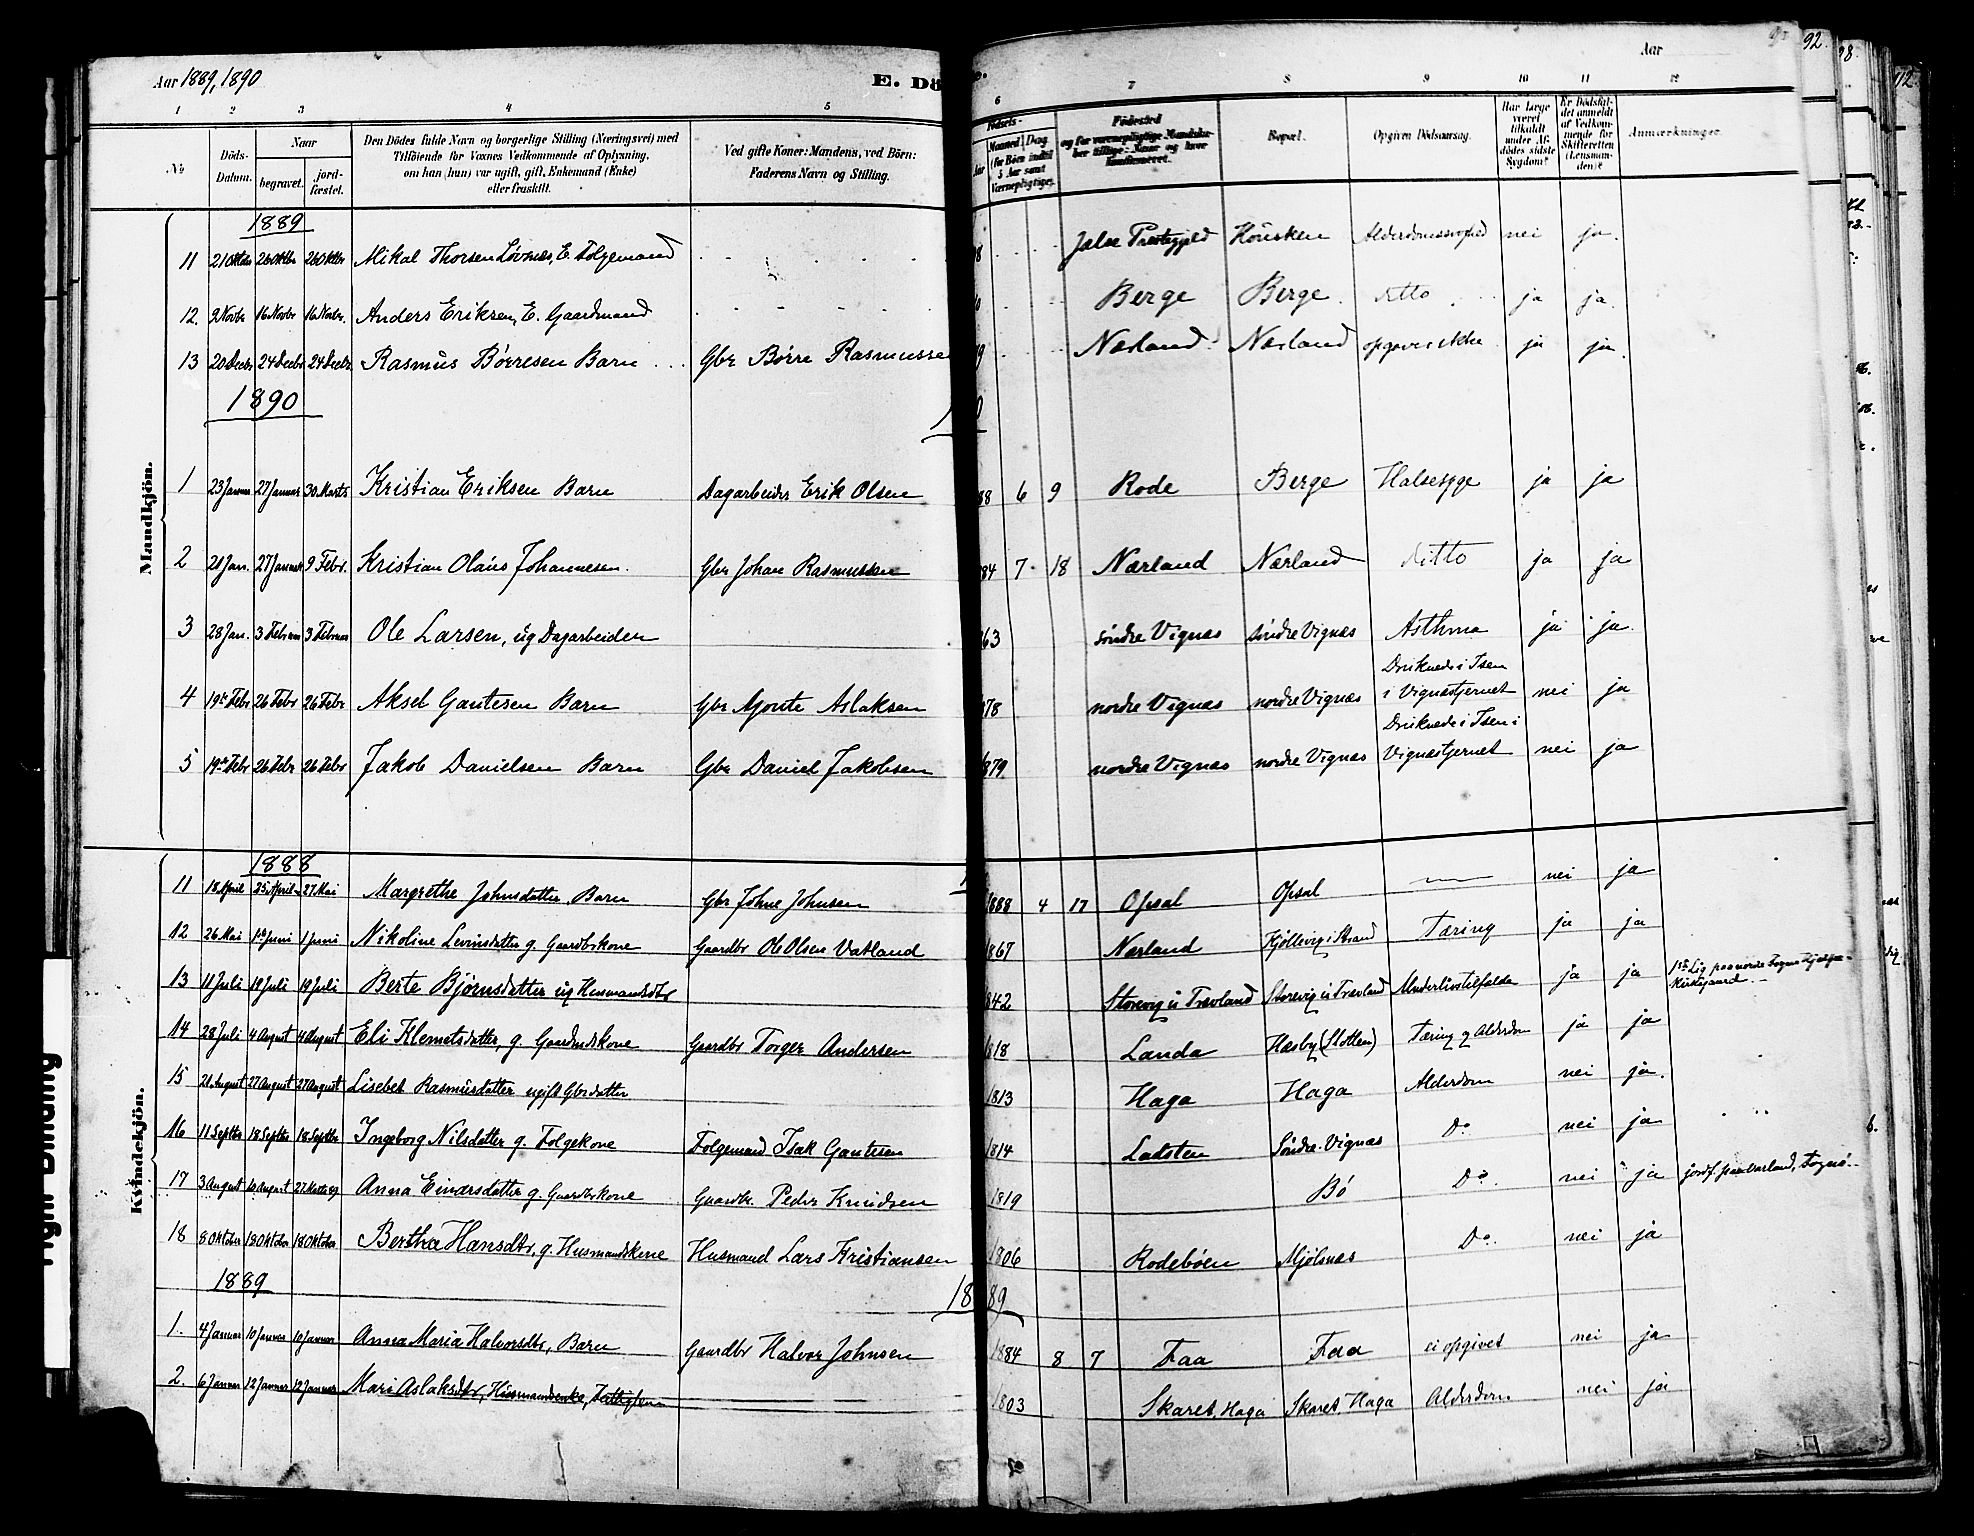 Aar 1889, 1890
E. Dö
Aar
92.
98.
112.
1 2 3 4 5 6 7 8 9 10 11 12
№
Döds-Datum.
Naar
begravet.
jord-fæstet.
Den Dödes fulde Navn og borgerlige Stilling (Næringsvei) med
Tilföiende for Voxnes Vedkommende af Oplysning,
om han (hun) var ugift, gift, Enkemand (Enke)
eller fraskilt.
Ved gifte Koner: Mandens, ved Börn:
Faderens Navn og Stilling.
Födsels-
Aar
Maaned Dag
(for Börn indtil
5 Aar samt
Værnepligtige).
Födested
og for værnepligtige Mandskaber tillige: Naar og hvor
konfirmeret.
Bopæl.
Opgiven Dödsaarsag.
Har Læge været tilkaldt under Afdödes sidste Sygdom?
Er Dödsfaldet anmeldt af Vedkommende for Skifteretten (Lensmanden)?
Anmærkninger.
Mandkjön.
1889
11 21 Oktbr 26 Oktbr 26 Oktbr Mikal Thorsen Løvnæs, E. Folgemand Jelse Præstegjeld Housken nei ja.
12. 9 Novbr 16 Novbr 16 Novbr. Anders Eriksen, E. Gaardmand Berge Berge ditto ja ja.
13 20 Decbr 24 Decbr 24 Decbr. Rasmus Börresen Barn Gbr Börre Rasmusse Nærland Nærland opgives ikke ja ja.
1890
1 23 Januar 27 Januar 30 Marts Kristian Eriksen Barn Dagarbeider Erik Olsen 88 6 9 Rode Berge Halsesyge ja ja
2 21 Jan. 27 Januar 9 Febr. Kristian Olaus Johannesen. Gbr Johan Rasmussen 84 7 18 Nærland Nærland ditto ja ja
3 28 Jan. 3 Februar 3 Februar Ole Larsen, ug Dagarbeider 63 söndre Vignæs söndre Vignæs Asthma ja ja.
4 19de Febr 26 Febr 26 Febr Aksel Gautesen Barn Gbr Gjoute Aslaksen 78 nordre Vignæs nordre Vignæs Druknede i Isen
i Vignæstjernet nei ja
5 19de Febr 26 Febr 26 Febr Jakob Danielsen Barn Gbr Daniel Jakobsen 879 nordre Vignæs nordre Vignæs Druknede i Isen i
Vignæstjernet nei ja
Kvindekjön.
1888
11 18 April 25 April 27 Mai Margrethe Johnsdatter Barn Gbr Johne Johnsen 1888 4 17 Opsal Opsal nei ja
12 26 Mai 1ste Juni 1 Juni Nikoline Levinsdatter g. Gaardbrkone Gaardbr Ole Olsen Vatland 867 Nærland Kjöllevig i Strand Tæring ja ja
13 11 Juli 19 Juli 19 Juli Berte Björnsdatter ug Husmandsdtr 842 Storevig u Trævland Storevig u Trævland Underlivstilfælde ja ja 1ste Lig paa nordre
Kirkegaard.
14 28 Juli 4 August 4 August Eli Klemetsdatter, g. Gaardmdskone Gaardbr Torger Andersen 1818 Landa Hæsby (Slotten) Tæring og Alderdom ja ja
15 21. August 27 August 27 August Lisebet Rasmusdatter ugift Gbrdatter 1813 Haga Haga Alderdom nei ja.
16 11 Septbr 18 Septbr 18 Septbr Ingeborg Nilsdatter g. Folgekone Folgemand Isak Gautesen 1814 Ladsten Söndre Vignæs Do nei ja
17 3 August 10 August Anna Einarsdatter g. Gaardbrkone Gaardbr. Peder Knudsen 1819 Bö Do. nei ja jordf. paa
18 8 Oktober 18 Oktober 18 Oktober Bertha Hansdtr, g. Husmandskone Husmand Lars Kristiansen 1806 Rodeböen Mjölsnæs Do. nei ja
1889 1889
1. 4 Januar 10 Januar 10 Januar Anna Maria Halvorsdtr, Barn Gaardbr Halvor Johnsen 1884 8 7 Faa Faa ei opgivet nei ja
2. 6 Januar 12 Januar 12 Januar Mari Aslaksdtr, Husmandsenke, 1803 Skaret, Haga Skaret, Haga Alderdom nei ja